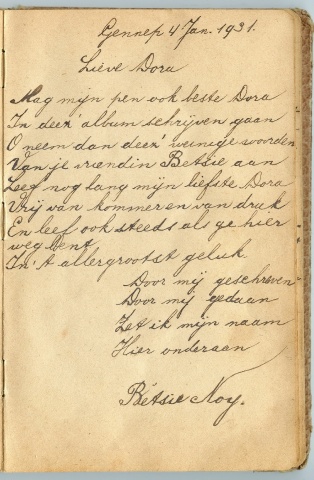 Gennep 4 Jan. 1931.
Lieve Dora
Mag mijn pen ook beste Dora
In deez' album schrijven gaan
O neem dan deez' weinige woorden
Van je vriendin Betsie aan
Leef nog lang mijn liefste Dora
Vrij van kommer en van druk
En leef ook steeds als ge hier
weg bent
In 't allergrootst geluk
Door mij geschreven
Door mij gedaan
Zet ik mijn naam
Hier onderaan
Betsie Noy.